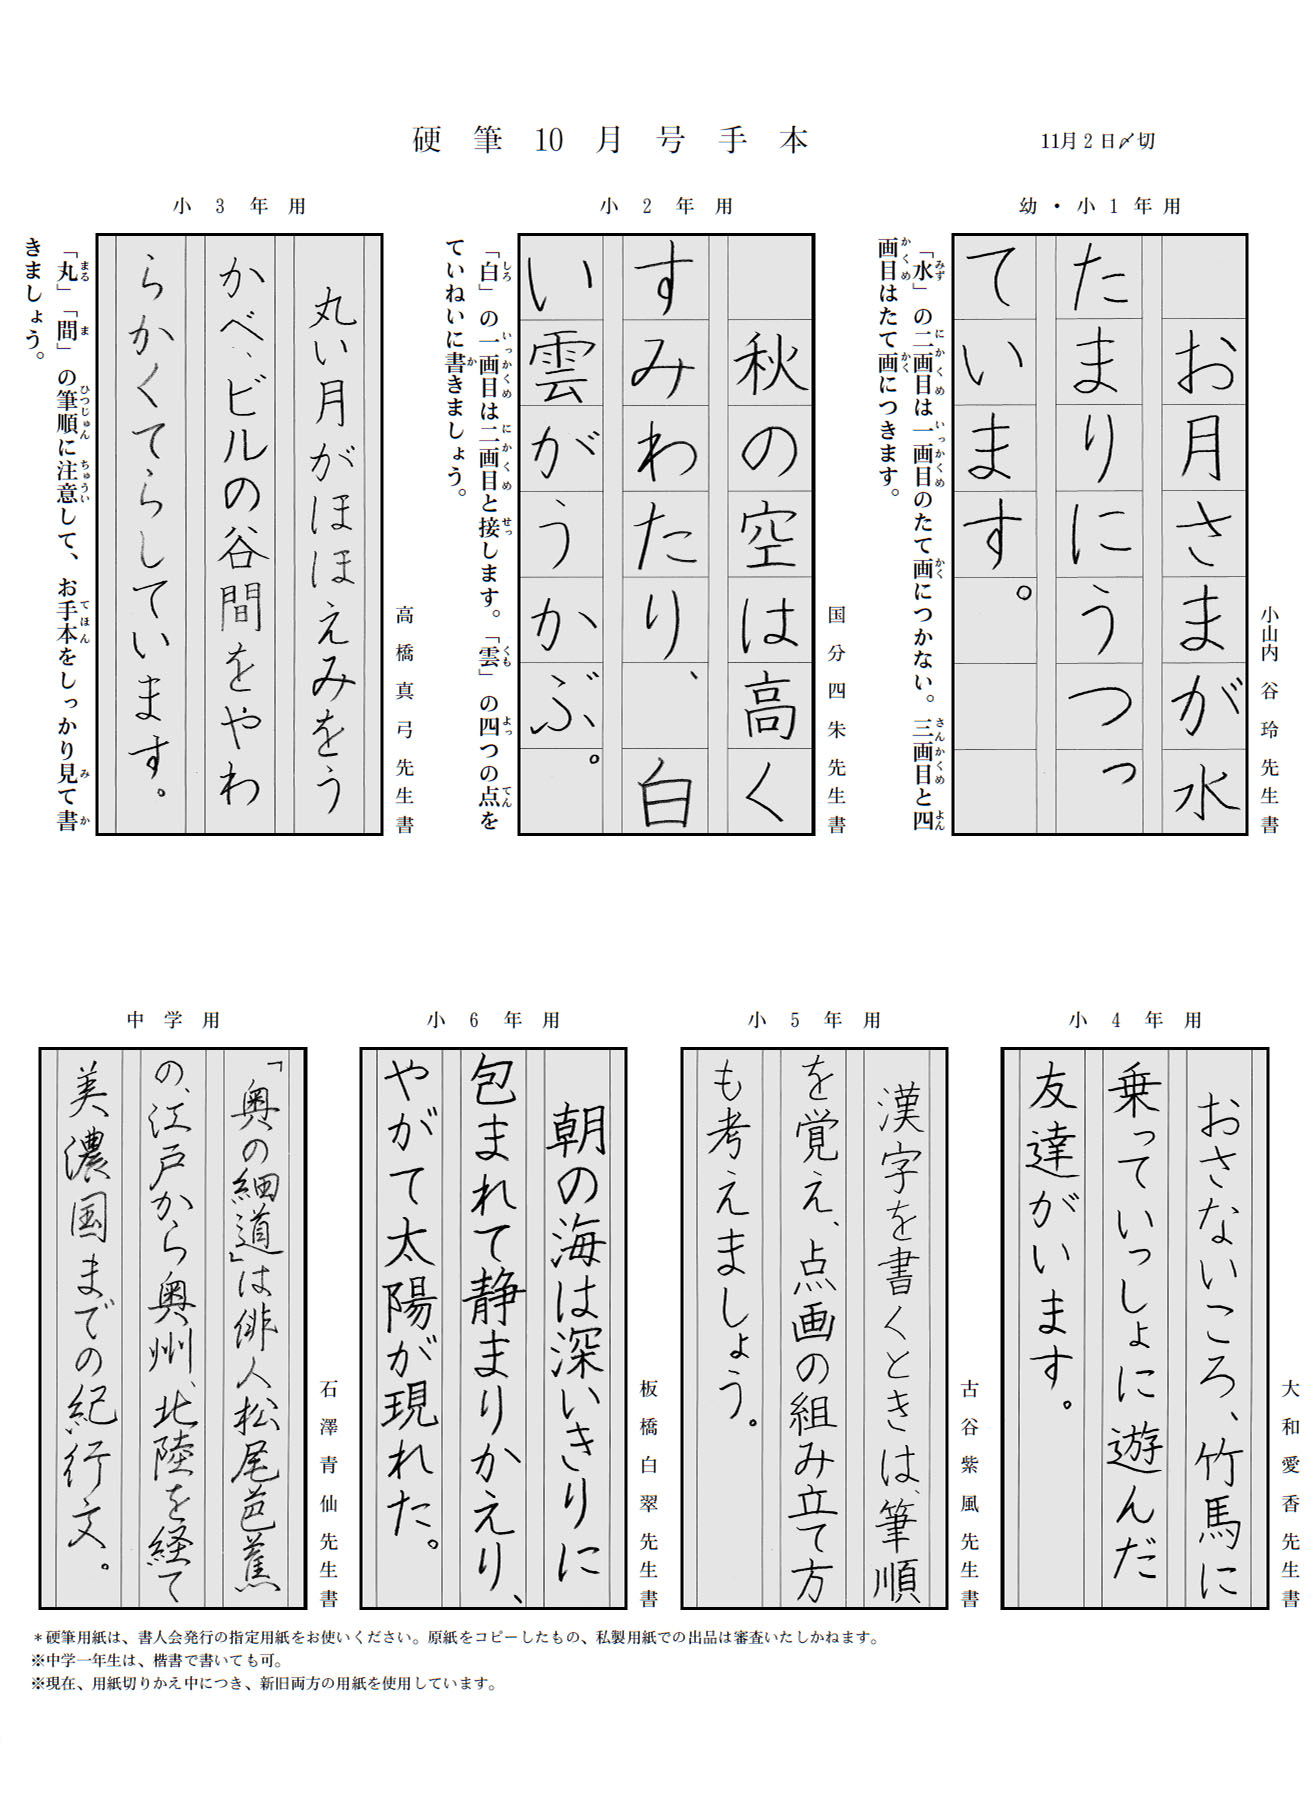 硬筆10月号手本
11月2日〆切
幼・小1年用
お月さまが水
たまりにうつっ
ています。
「水」の二画目は一画目のたて画につかない。三画目と四
画目はたて画につきます。
小山内谷玲先生書
小2年用
秋の空は高く
すみわたり、白
い雲がうかぶ。
「白」の一画目は二画目と接します。「雲」の四つの点を
ていねいに書きましょう。
国分四朱先生書
小3年用
丸い月がほほえみをう
かべ、ビルの谷間をやわ
らかくてらしています。
「丸」「間」の筆順に注意して、お手本をしっかり見て書
きましょう。
高橋真弓先生書
小4年用
おさないころ、竹馬に
乗っていっしょに遊んだ
友達がいます。
大和愛香先生書
小5年用
漢字を書くときは、筆順
を覚え、点画の組み立て方
も考えましょう。
古谷紫風先生書
小6年用
朝の海は深いきりに
包まれて静まりかえり、
やがて太陽が現れた。
板橋白翠先生書
中学用
「奥の細道」は俳人松尾芭蕉
の、江戸から奥州、北陸を経て
美濃国までの紀行文。
石澤青仙先生書
＊硬筆用紙は、書人会発行の指定用紙をお使いください。原紙をコピーしたもの、私製用紙での出品は審査いたしかねます。
※中学一年生は、楷書で書いても可。
※現在、用紙切りかえ中につき、新旧両方の用紙を使用しています。